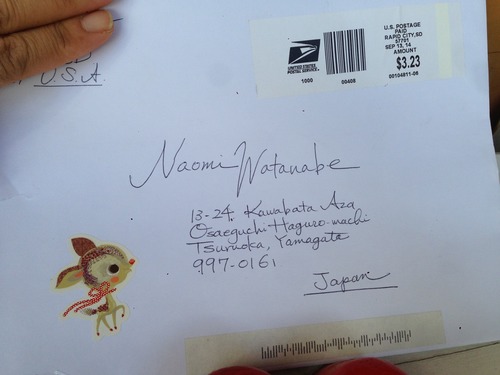 U.S.A.
U.S. POSTAGE
PAID
RAPID CITY, SD
57701
SEP 13, 14
AMOUNT
$3.23
00104811-06
UNITED STATES
POSTAL SERVICE
1000
00408
Naomi Watanabe
13-24 Kawabata Aza
Osaeguchi Haguro-machi
Tsuruoka, Yamagata
997-0161
Japan